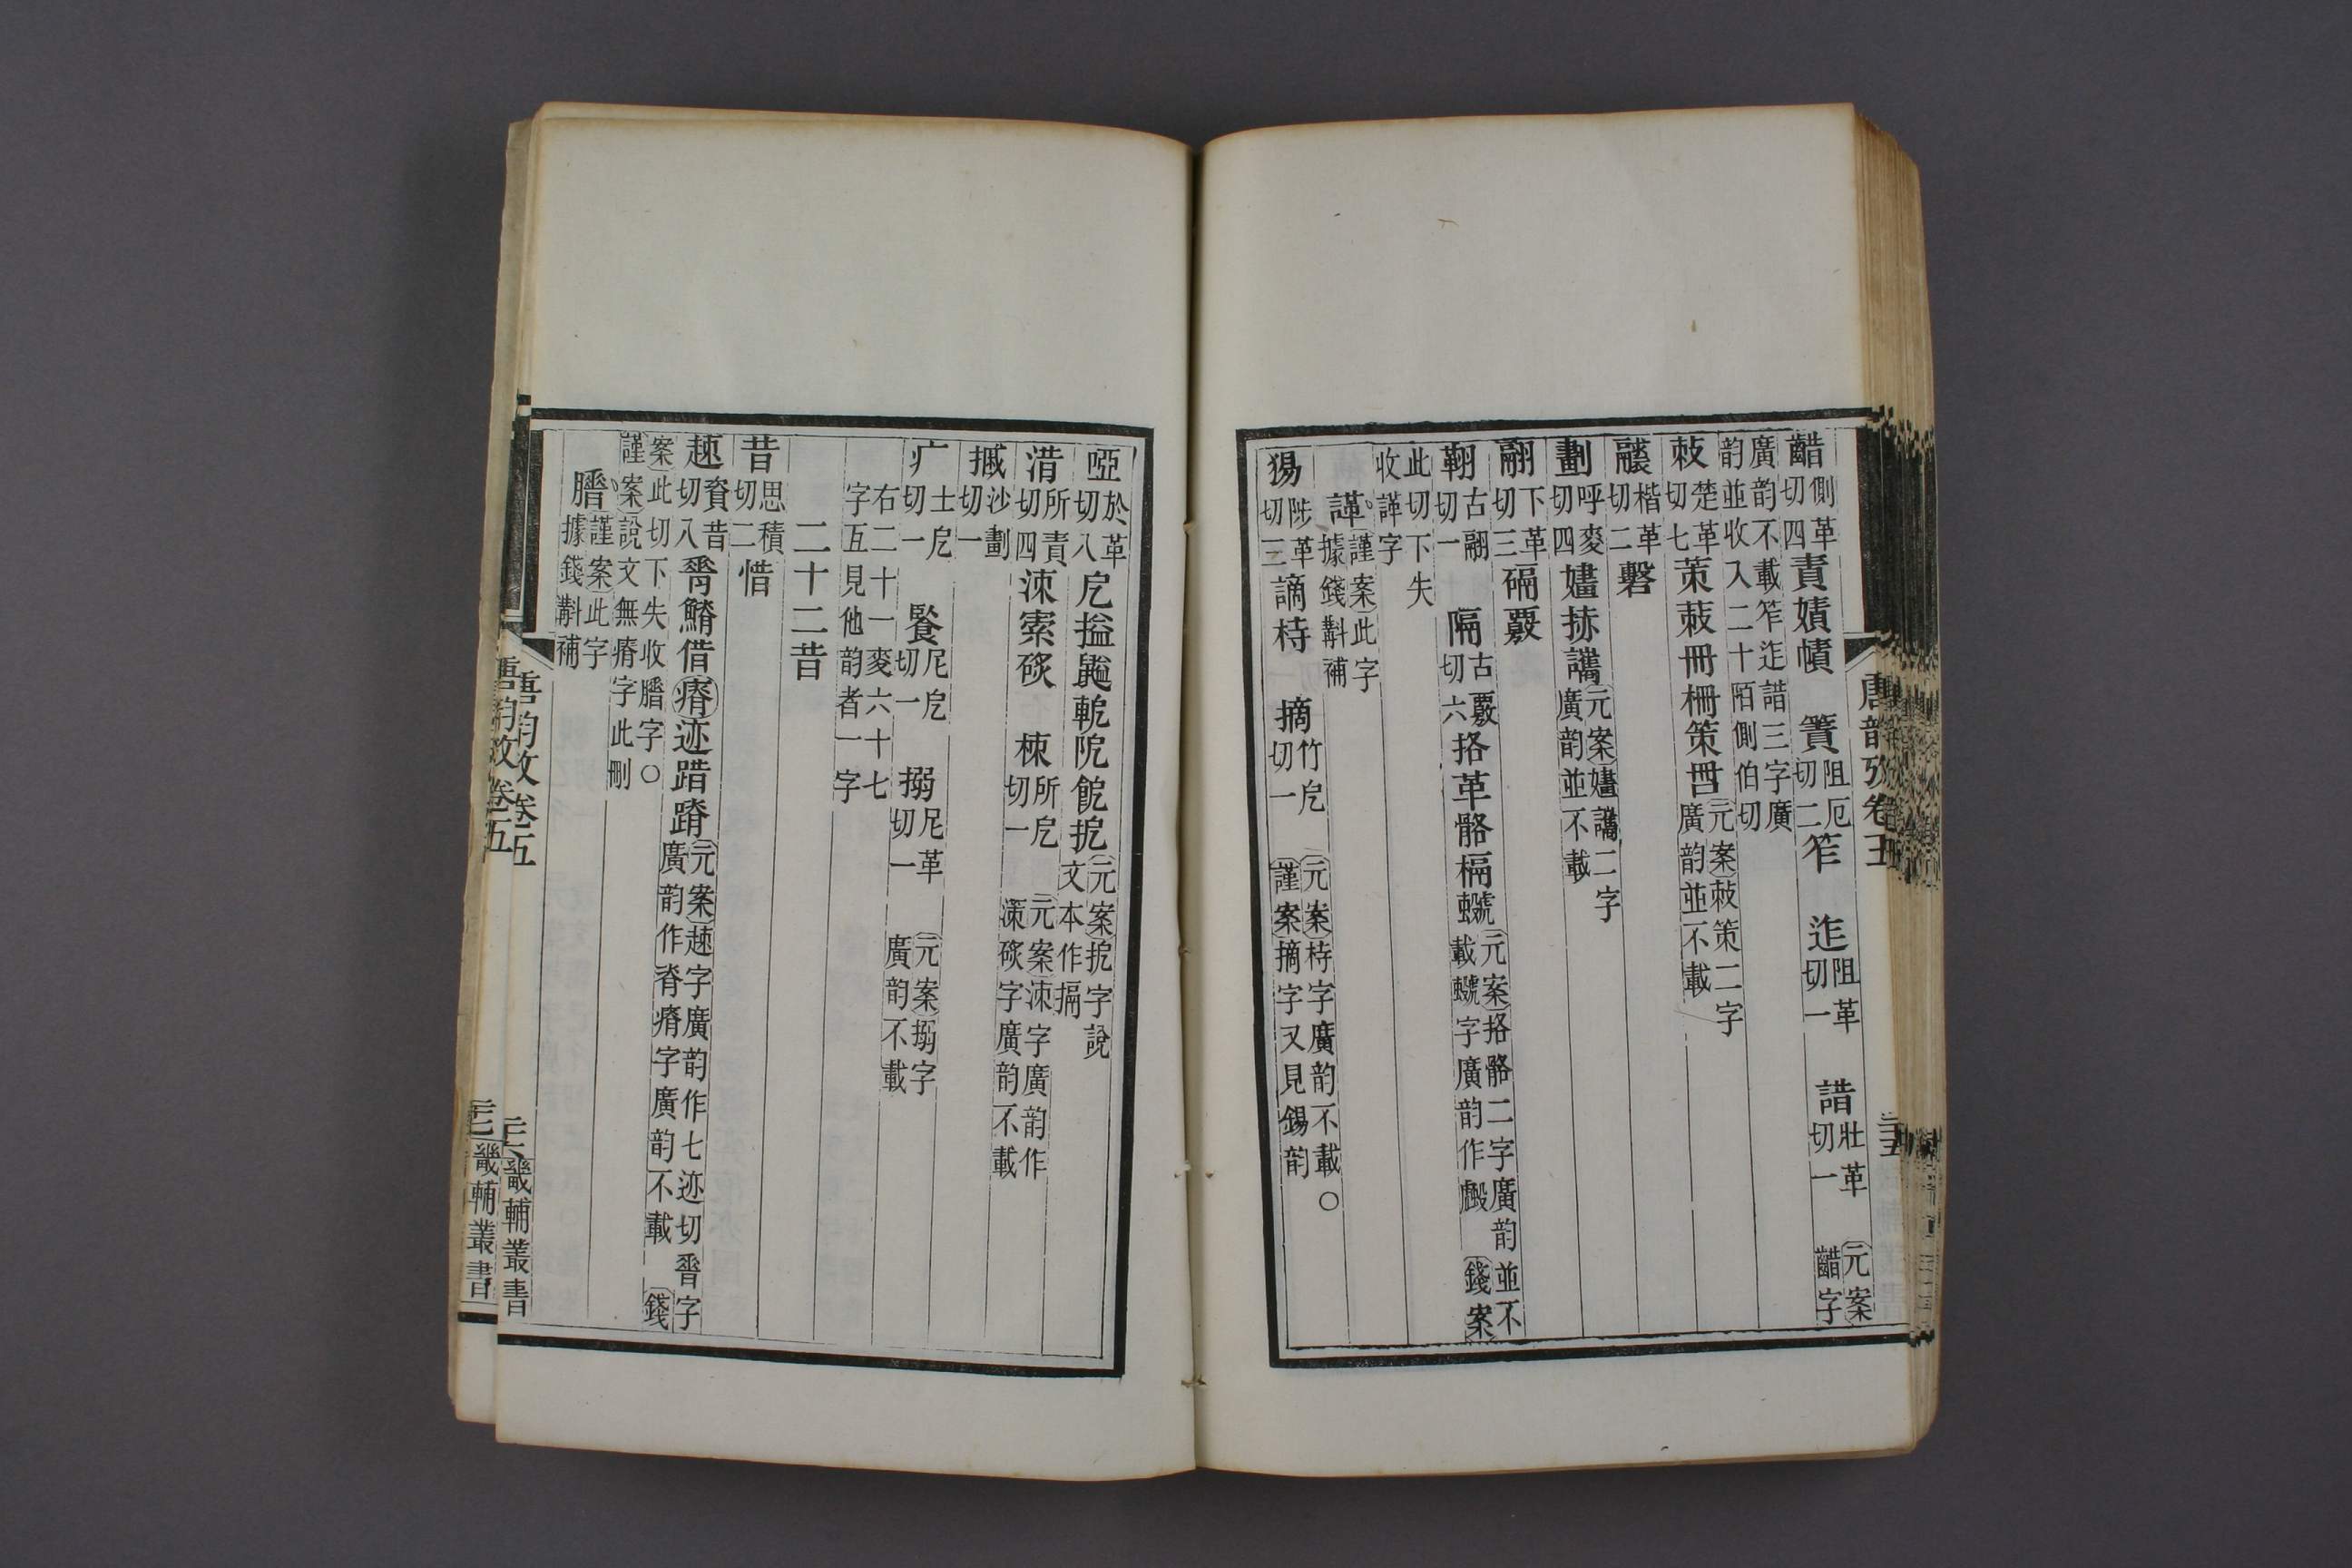 唐韵攷卷五
齰側革切四責嫧幘 簀阻厄切二笮 迮阻革切一 諎壯革切一 元案齰字
廣韵不載笮迮諎三字廣韵並收入二十陌側伯切
敇楚革切七茦蔌冊柵策𠕋元案敇策二字廣韵並不載
楷革切二磬
劃呼麥切四㨒讗元案讗二字廣韵並不載
翮下革切三䃒覈
古翮切一 隔古覈切六挌革骼槅元案挌骼二字廣韵並不載字廣韵作 錢案
此切下失收諽字
諽謹案此字據錢斠補
陟革切三謫 摘竹戹切一 元案字廣韵不載○謹案摘字又見錫韵
啞於革切八戹搤軶阸䬵扼元案字說文本作搹
所責切四涑索 楝所戹切一 元案涑字廣韵作字廣韵不載
沙劃切一
疒士戹切一 尼戹切一 搦尼革切一 元案搦字廣韵不載
右二十一麥六十七字五見他韵者一字
二十二昔
昔思積切二惜
趚資昔切八借瘠迹踖蹐元案趚字廣韵作七迹切字廣韵作脊瘠字廣韵不載 錢
案此切下失收字○謹案說文無瘠字此刪
謹案此字據錢斠補
唐韵攷卷五
畿輔叢書
唐韵攷卷五
畿輔叢書